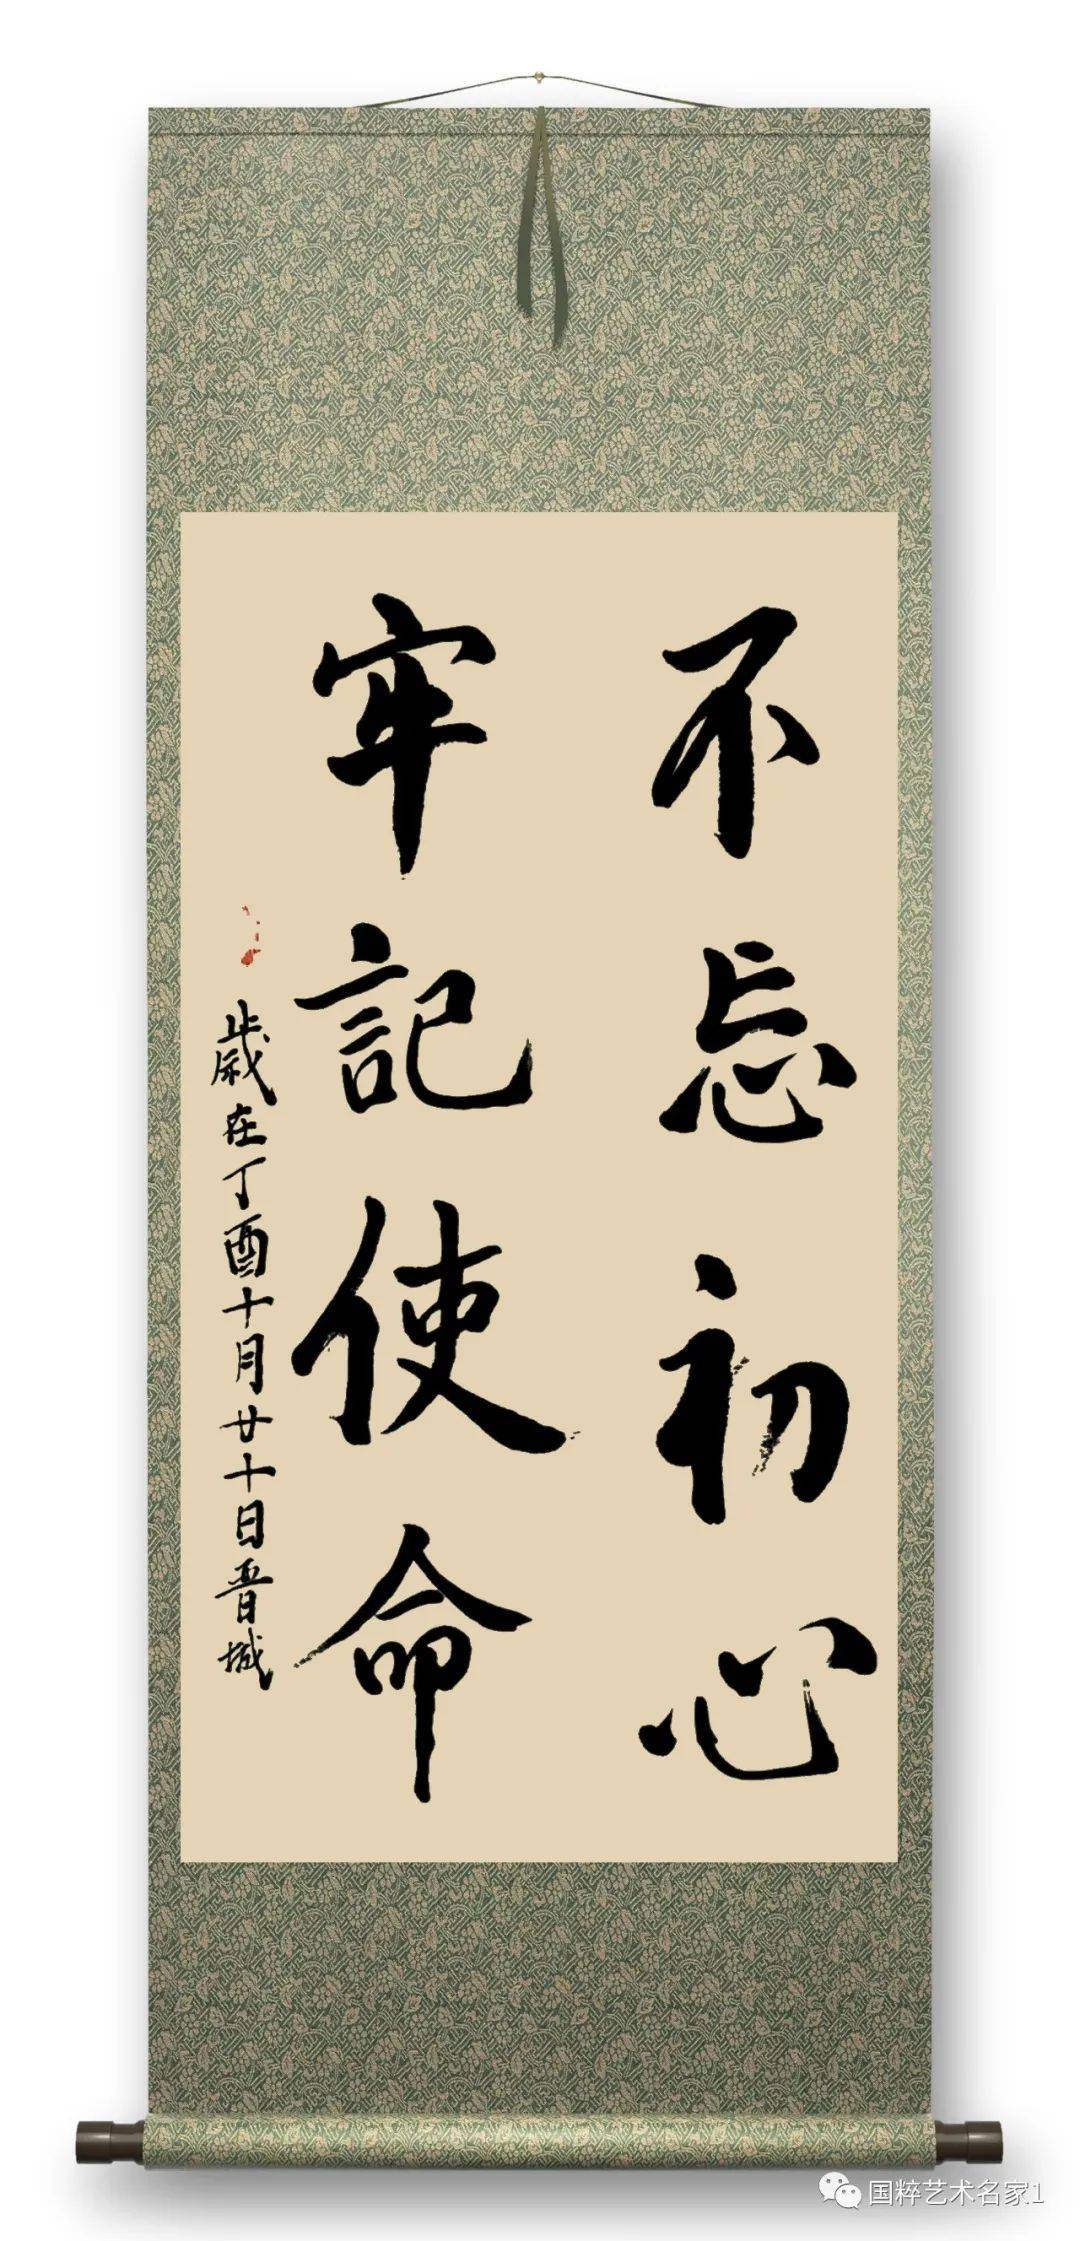 不忘初心
牢記使命
歲在丁酉十月廿十日晋城
国粹艺术名家1